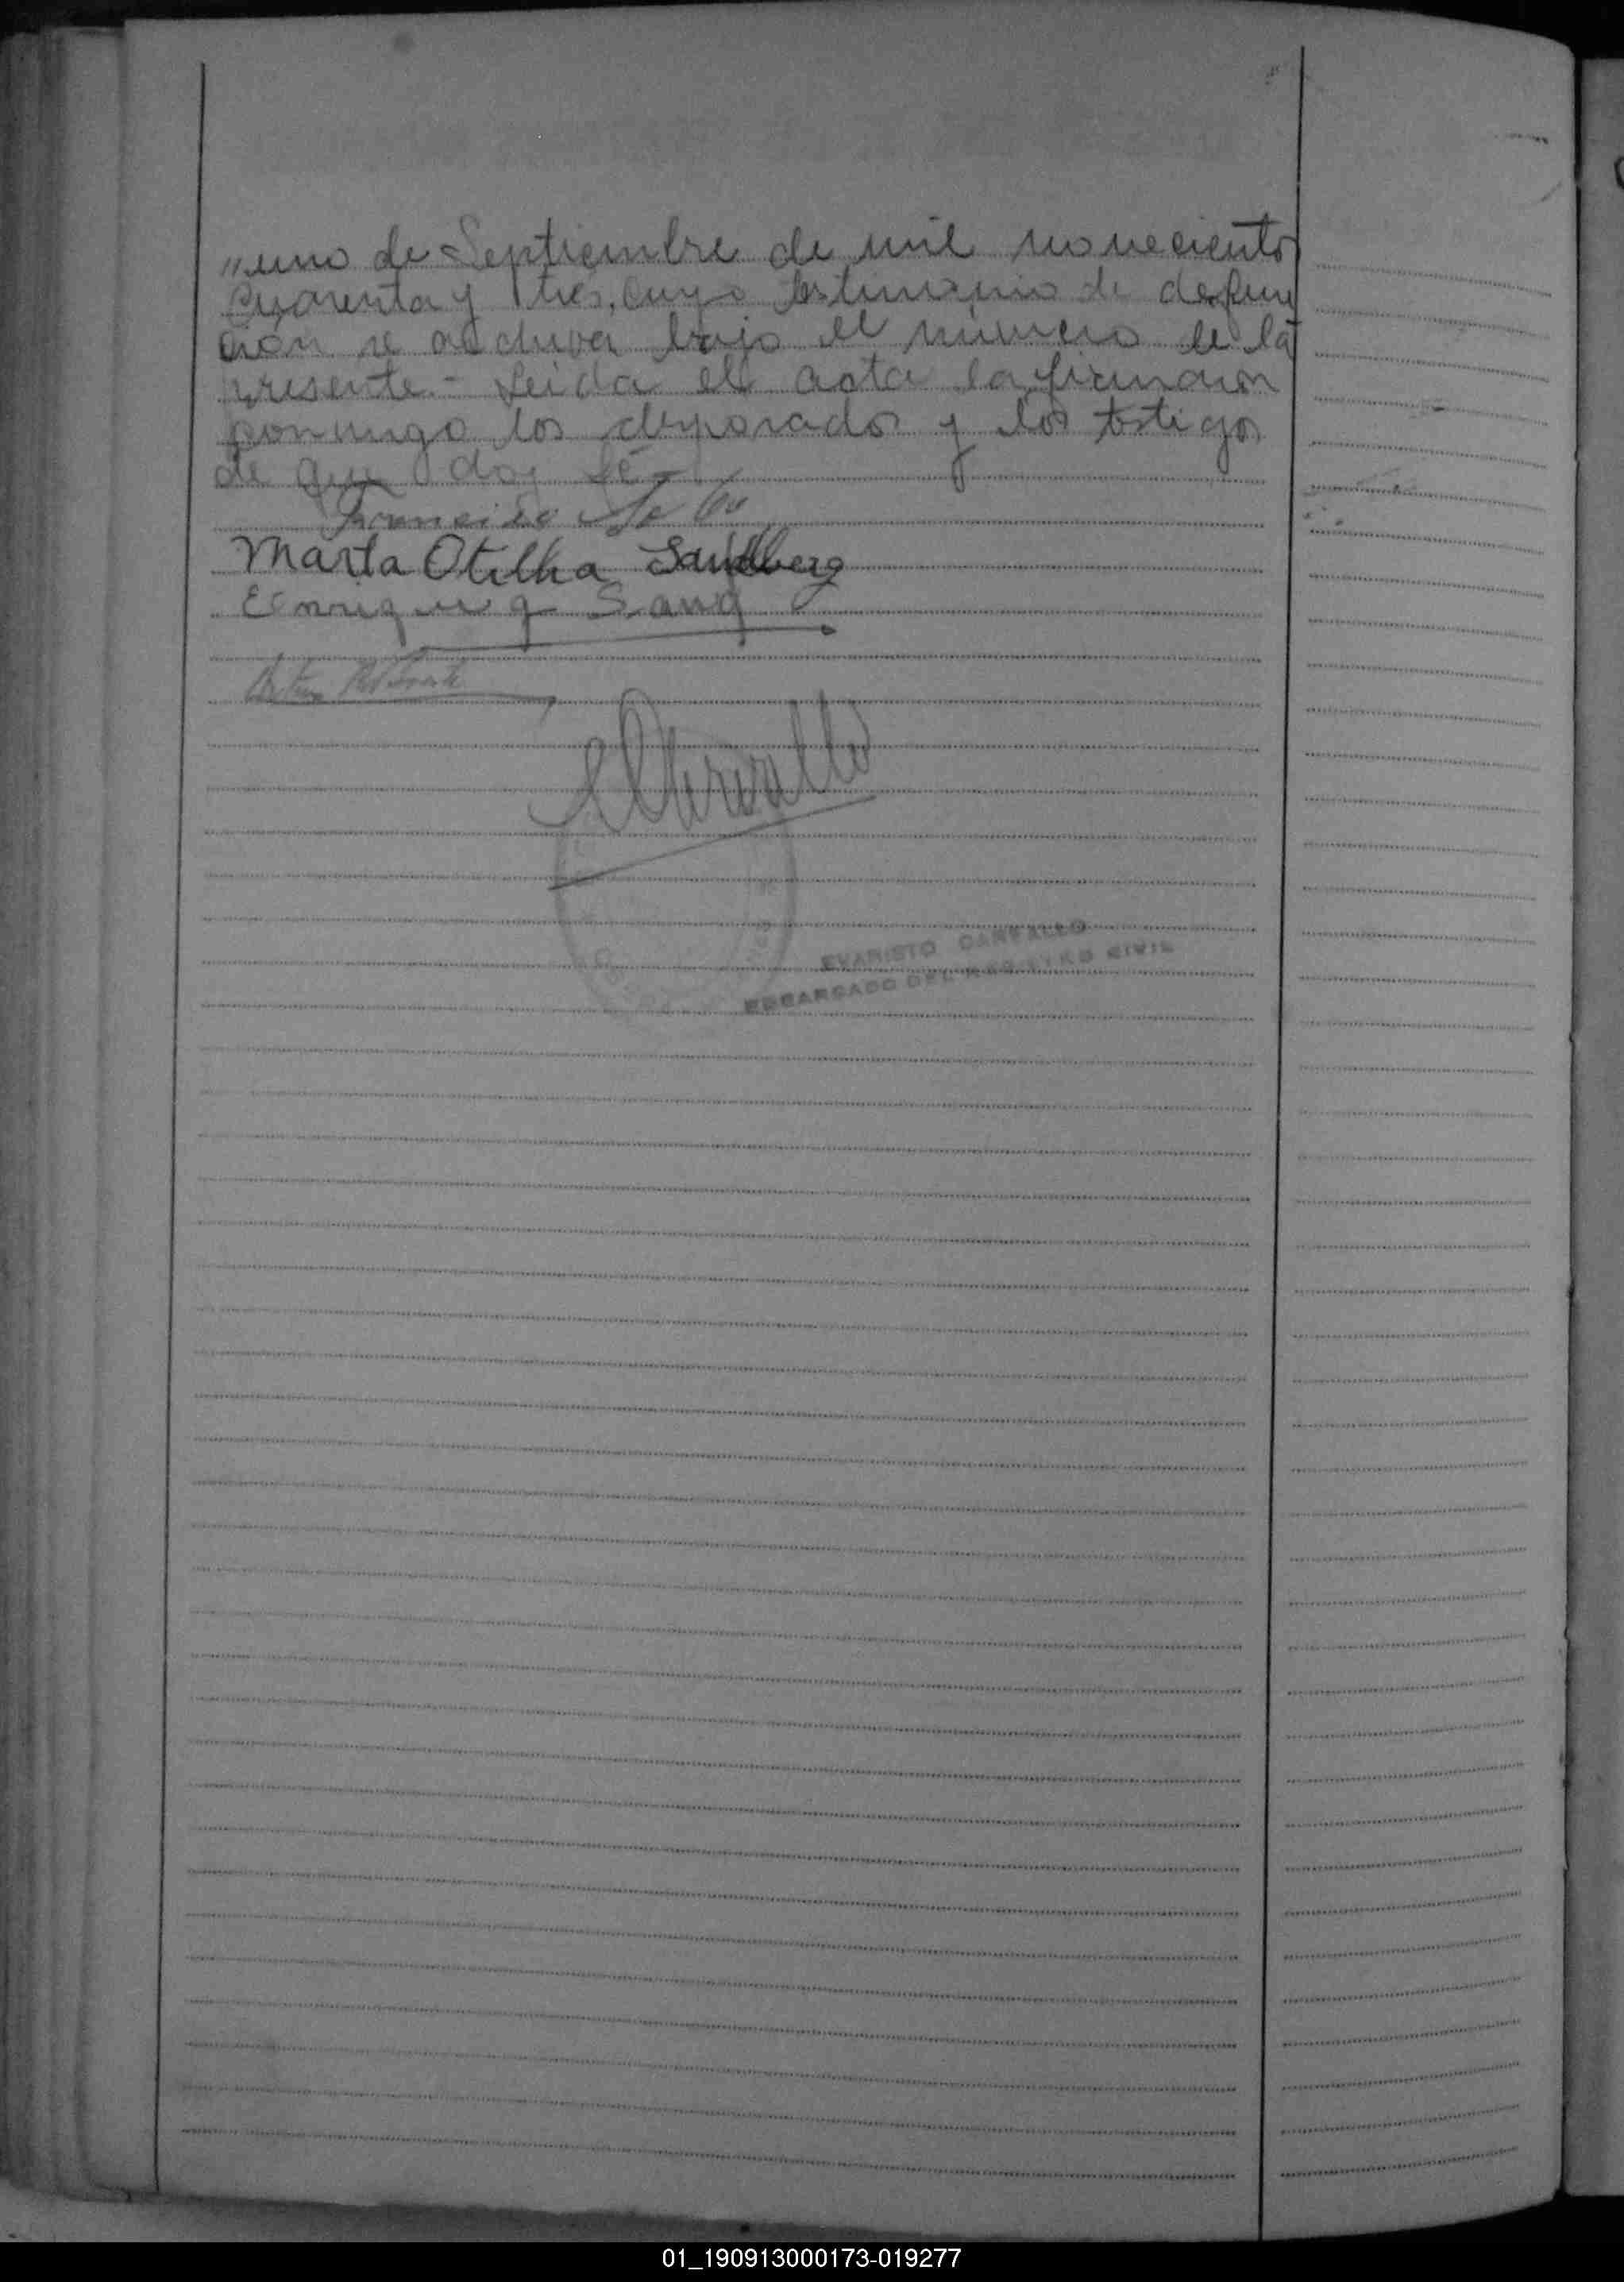 "uno de Septiembre de mil novecientos
cuarenta y tres, cuyo testimonio de defun
ción se archiva bajo el número de la
presente.- Leida el acta la firmaron
conmigo los desposados y los testigos
de que doy fé-
Francisco
Marta Otilha Sandberg
Enrique Sang
Carvallo
EVARISTO CARVALLO
ENCARGADO DEL REGISTRO CIVIL
01_190913000173-019277